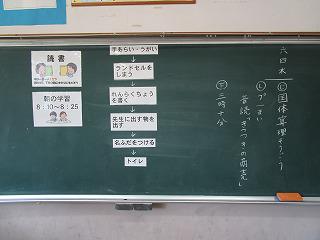 読書
朝の学習
8:10～8:25
手あらい・うがい
ランドセルを
しまう
れんらくちょう
を書く
先生に出す物を
出す
名ふだをつける
トイレ
六四木
国体算理そうこう
音読「きつつきの商売」
三時十分